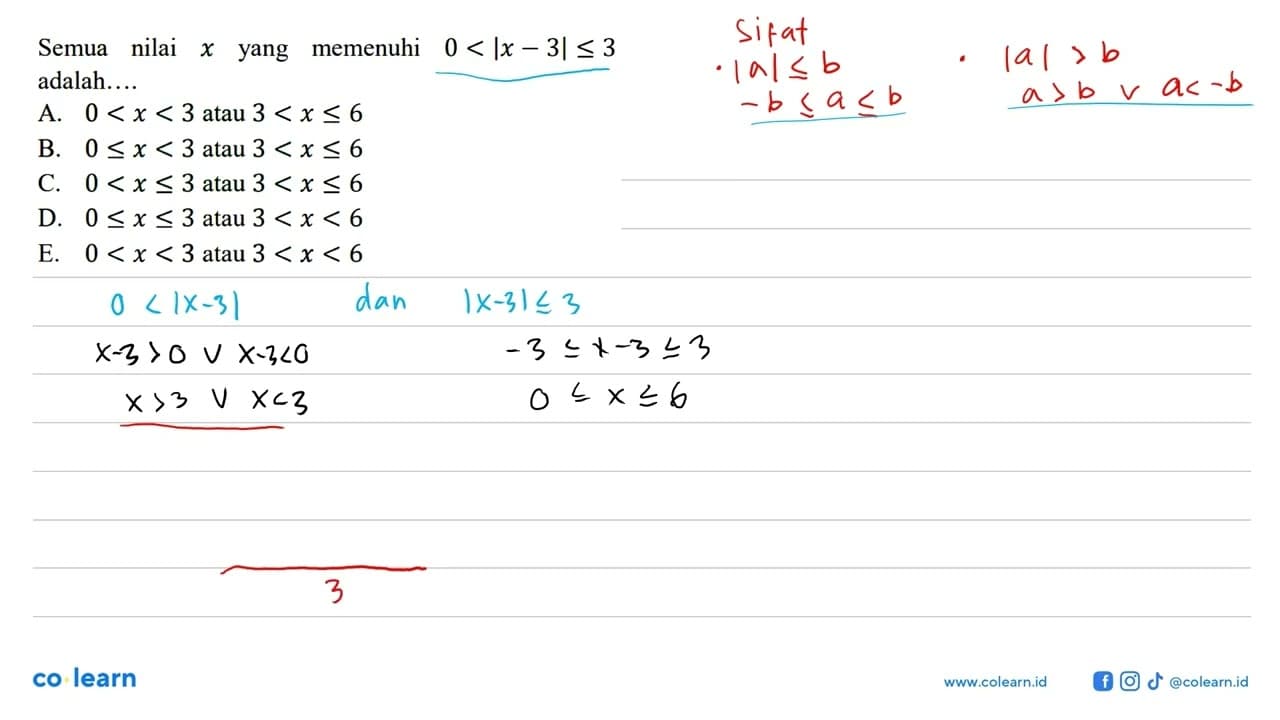 Semua nilai x yang memenuhi 0 < |x − 3| ≤ 3
adalah....
A. 0 < x < 3 atau 3 < x ≤ 6
B. 0 ≤ x < 3 atau 3 < x ≤ 6
C. 0 < x ≤ 3 atau 3 < x ≤ 6
D. 0 ≤ x ≤ 3 atau 3 < x < 6
E. 0 < x < 3 atau 3 < x < 6
Sifat
• |a| ≤ b
-b ≤ a ≤ b
• |a| > b
a > b v a < -b
0 < |x-3| dan |x-3| ≤ 3
x-3 > 0 v x-3 < 0
-3 ≤ x-3 ≤ 3
x > 3 v x < 3
0 ≤ x ≤ 6
3
co learn
www.colearn.id
@colearn.id